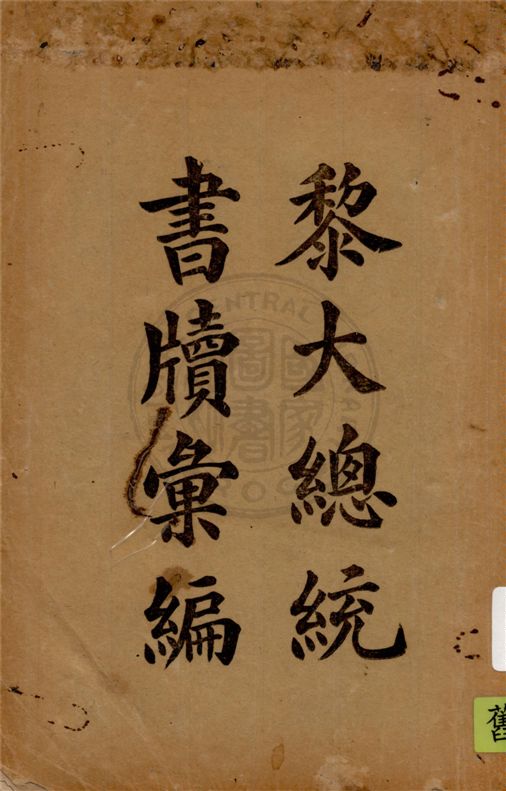 黎大總統
書牘彙編
CENTRAL
國家圖書
舊